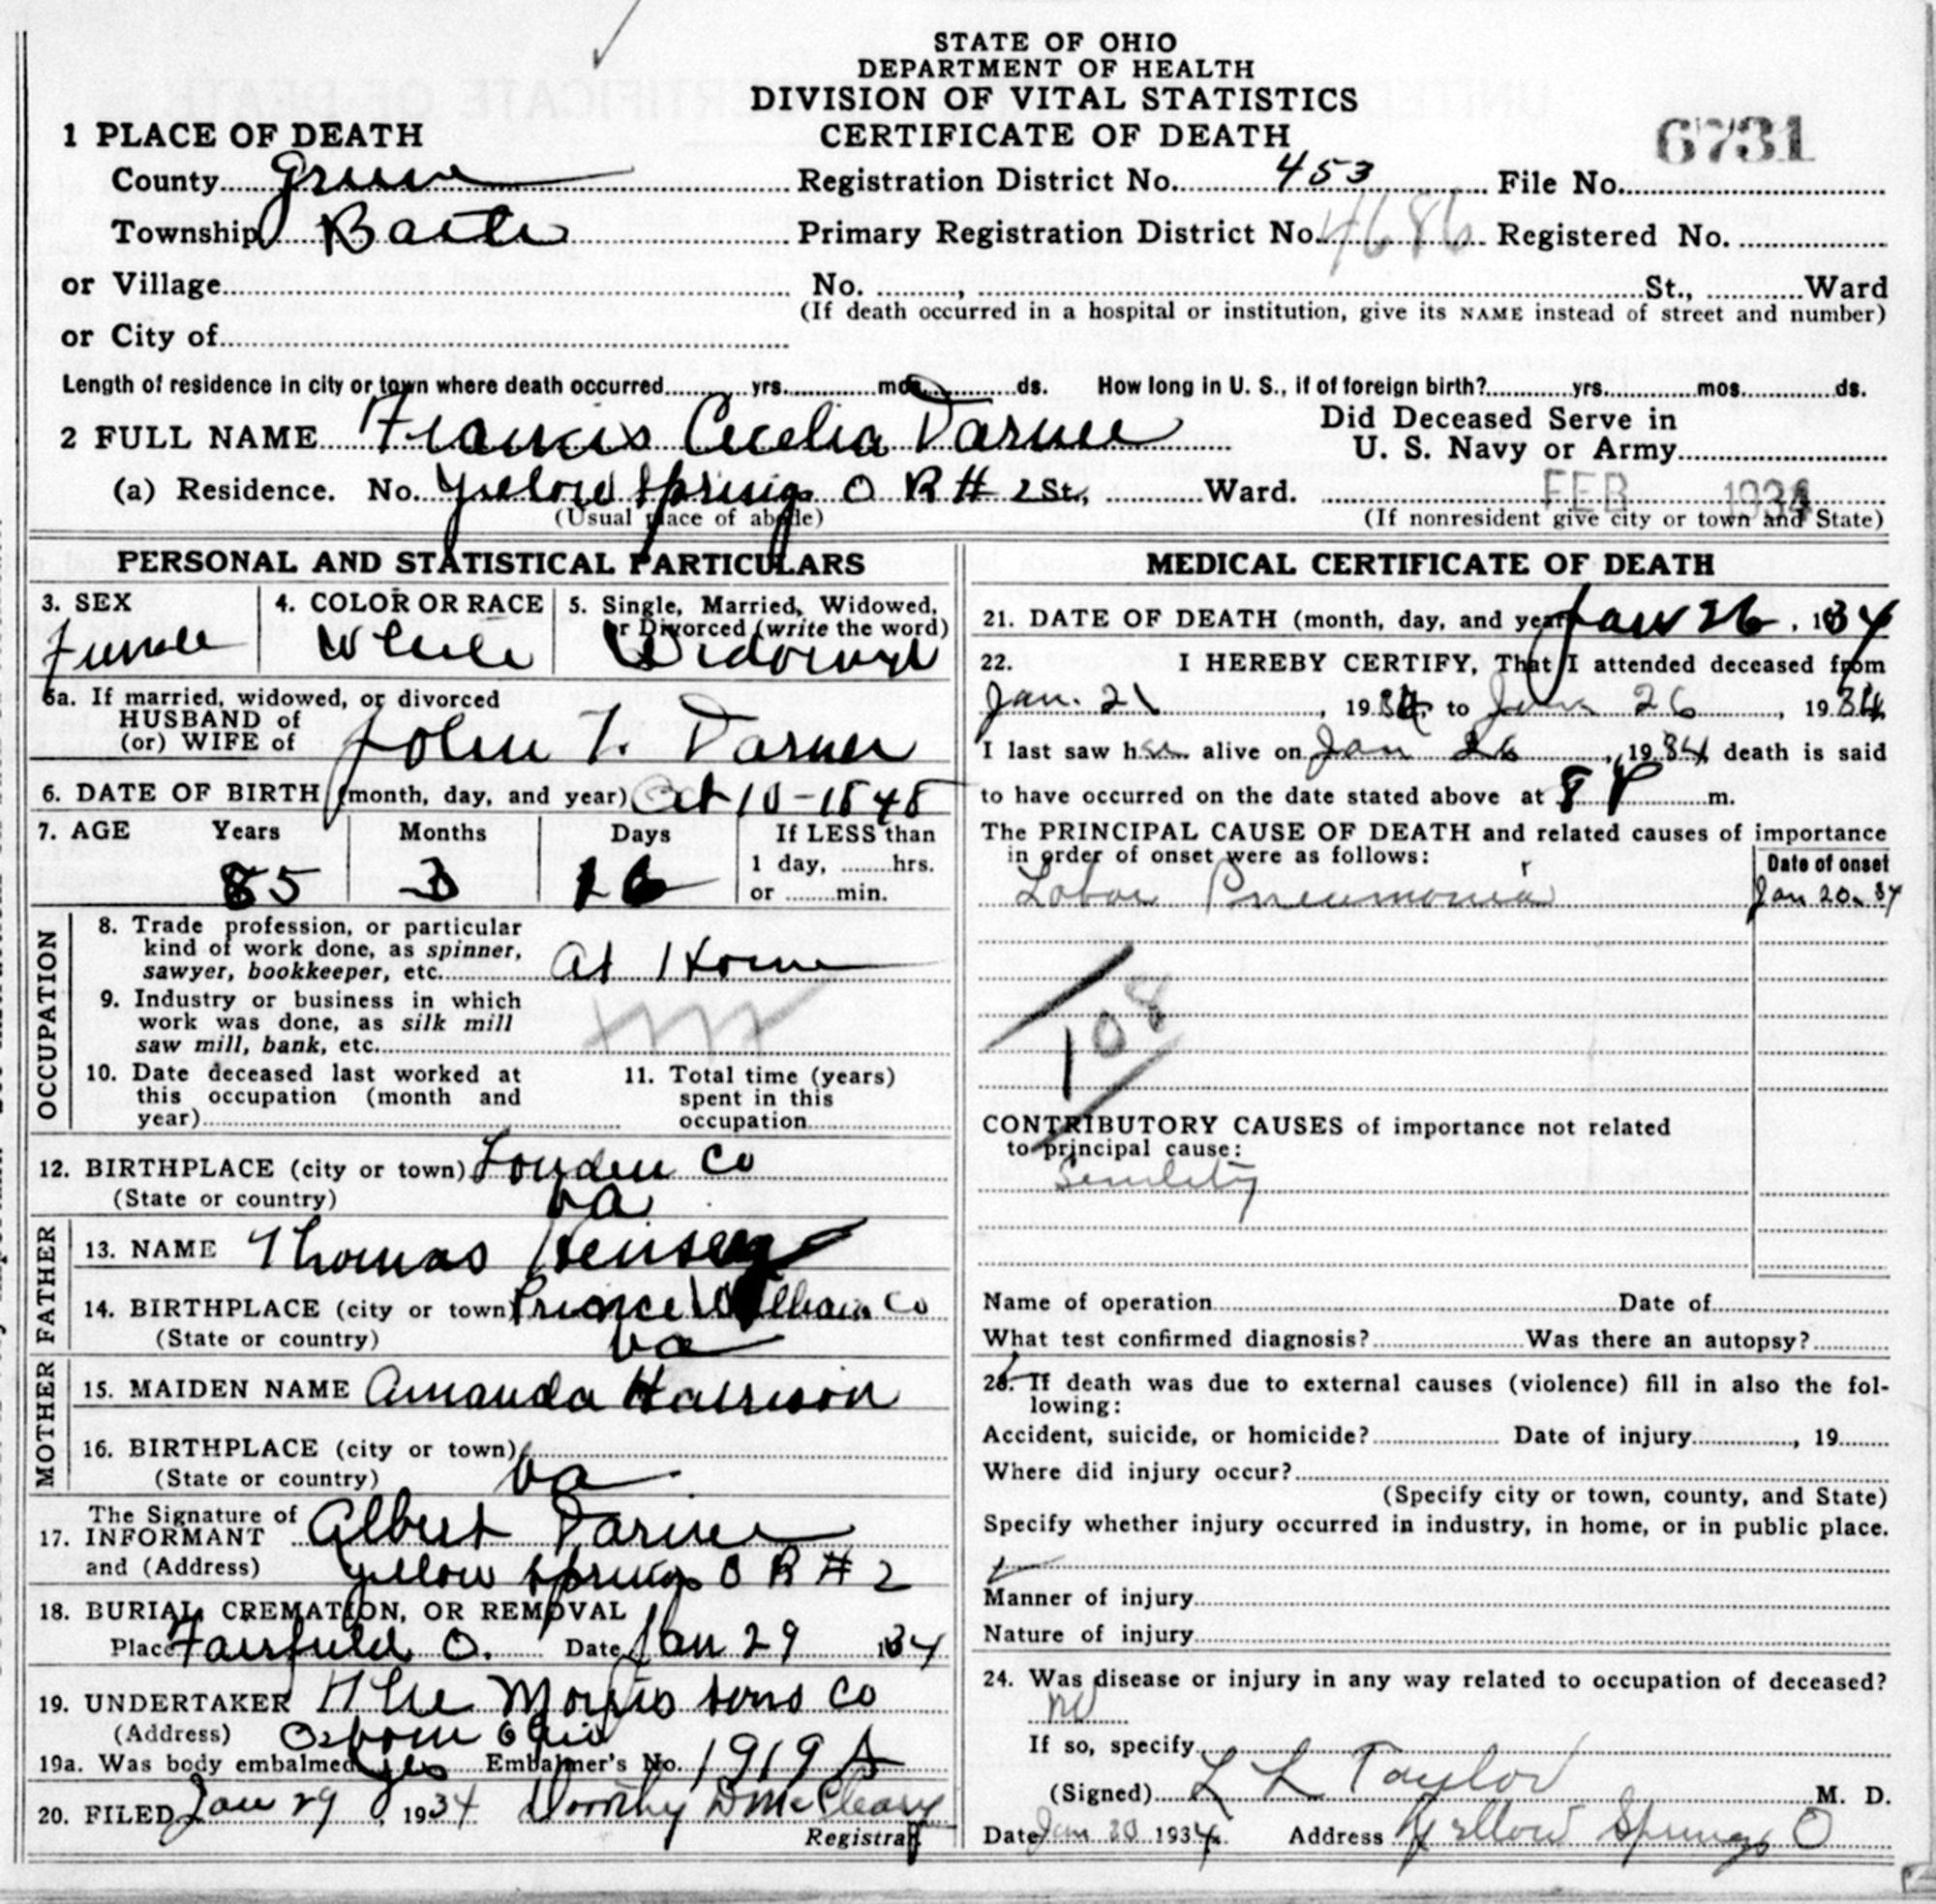 STATE OF OHIO
DEPARTMENT OF HEALTH
DIVISION OF VITAL STATISTICS
CERTIFICATE OF DEATH
6731
1 PLACE OF DEATH
County Greene Registration District No. 453 File No.
Township Bath Primary Registration District No. 4686 Registered No.
or Village No. , St., Ward
(If death occurred in a hospital or institution, give its NAME instead of street and number)
or City of
Length of residence in city or town where death occurred yrs. mos. ds. How long in U. S., if of foreign birth? yrs. mos. ds.
2 FULL NAME Francis Cecelia Darner Did Deceased Serve in U. S. Navy or Army
(a) Residence. No. Yellow Springs O R # 2 St., Ward. FEB 1934
(Usual place of abode) (If nonresident give city or town and State)
PERSONAL AND STATISTICAL PARTICULARS
3. SEX Female
4. COLOR OR RACE White
5. Single, Married, Widowed, or Divorced (write the word) Widowed
5a. If married, widowed, or divorced
HUSBAND of
(or) WIFE of John T. Darner
6. DATE OF BIRTH (month, day, and year) Oct 10-1848
7. AGE Years Months Days If LESS than
1 day, hrs.
or min.
85 3 16
OCCUPATION
8. Trade profession, or particular
kind of work done, as spinner,
sawyer, bookkeeper, etc. At Home
9. Industry or business in which
work was done, as silk mill
saw mill, bank, etc.
10. Date deceased last worked at
this occupation (month and
year)
11. Total time (years)
spent in this
occupation
12. BIRTHPLACE (city or town) Louden Co
(State or country) Va
FATHER
13. NAME Thomas
14. BIRTHPLACE (city or town) Prince William Co
(State or country) Va
MOTHER
15. MAIDEN NAME Amanda Harrison
16. BIRTHPLACE (city or town)
(State or country) Va
17. The Signature of
INFORMANT Albert Darner
and (Address) Yellow Springs O R # 2
18. BURIAL, CREMATION, OR REMOVAL
Place Fairfield O. Date Jan 29 1934
19. UNDERTAKER The Morris Sons Co
(Address) Osborn Ohio
19a. Was body embalmed yes Embalmer's No. 1919 A
20. FILED Jan 29, 1934 Dorothy B McCleary
Registrar
MEDICAL CERTIFICATE OF DEATH
21. DATE OF DEATH (month, day, and year) Jan 26, 1934
22. I HEREBY CERTIFY, That I attended deceased from
Jan. 21, 1934, to Jan 26, 1934
I last saw her alive on Jan 26, 1934, death is said
to have occurred on the date stated above at 8 P m.
The PRINCIPAL CAUSE OF DEATH and related causes of importance
in order of onset were as follows:
Date of onset
Lobar Pneumonia Jan 20-34
108
CONTRIBUTORY CAUSES of importance not related
to principal cause:
Senility
Name of operation Date of
What test confirmed diagnosis? Was there an autopsy?
23. If death was due to external causes (violence) fill in also the fol-
lowing:
Accident, suicide, or homicide? Date of injury , 19
Where did injury occur?
(Specify city or town, county, and State)
Specify whether injury occurred in industry, in home, or in public place.
Manner of injury
Nature of injury
24. Was disease or injury in any way related to occupation of deceased?
no
If so, specify
(Signed) L L Taylor M. D.
Date Jan 1934. Address Yellow Springs O